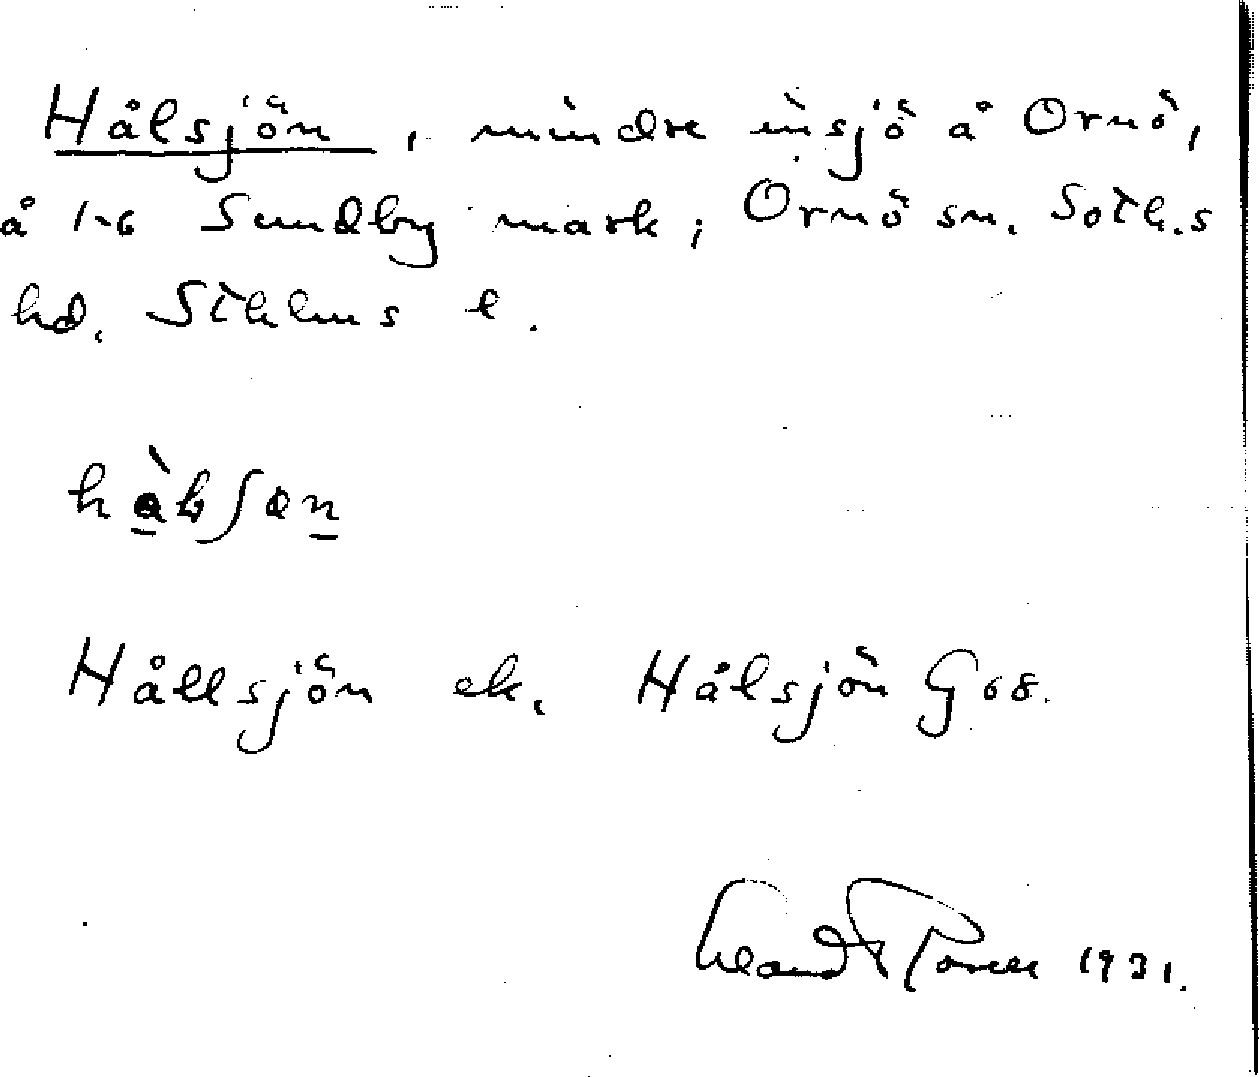 Hålsjön, mindre insjö å Ornö,
å 1-6 Sundby mark; Ornö sn. Soth.s
hd. Sthlms l.
Hållsjön ek. Hålsjön G 68.
1931.